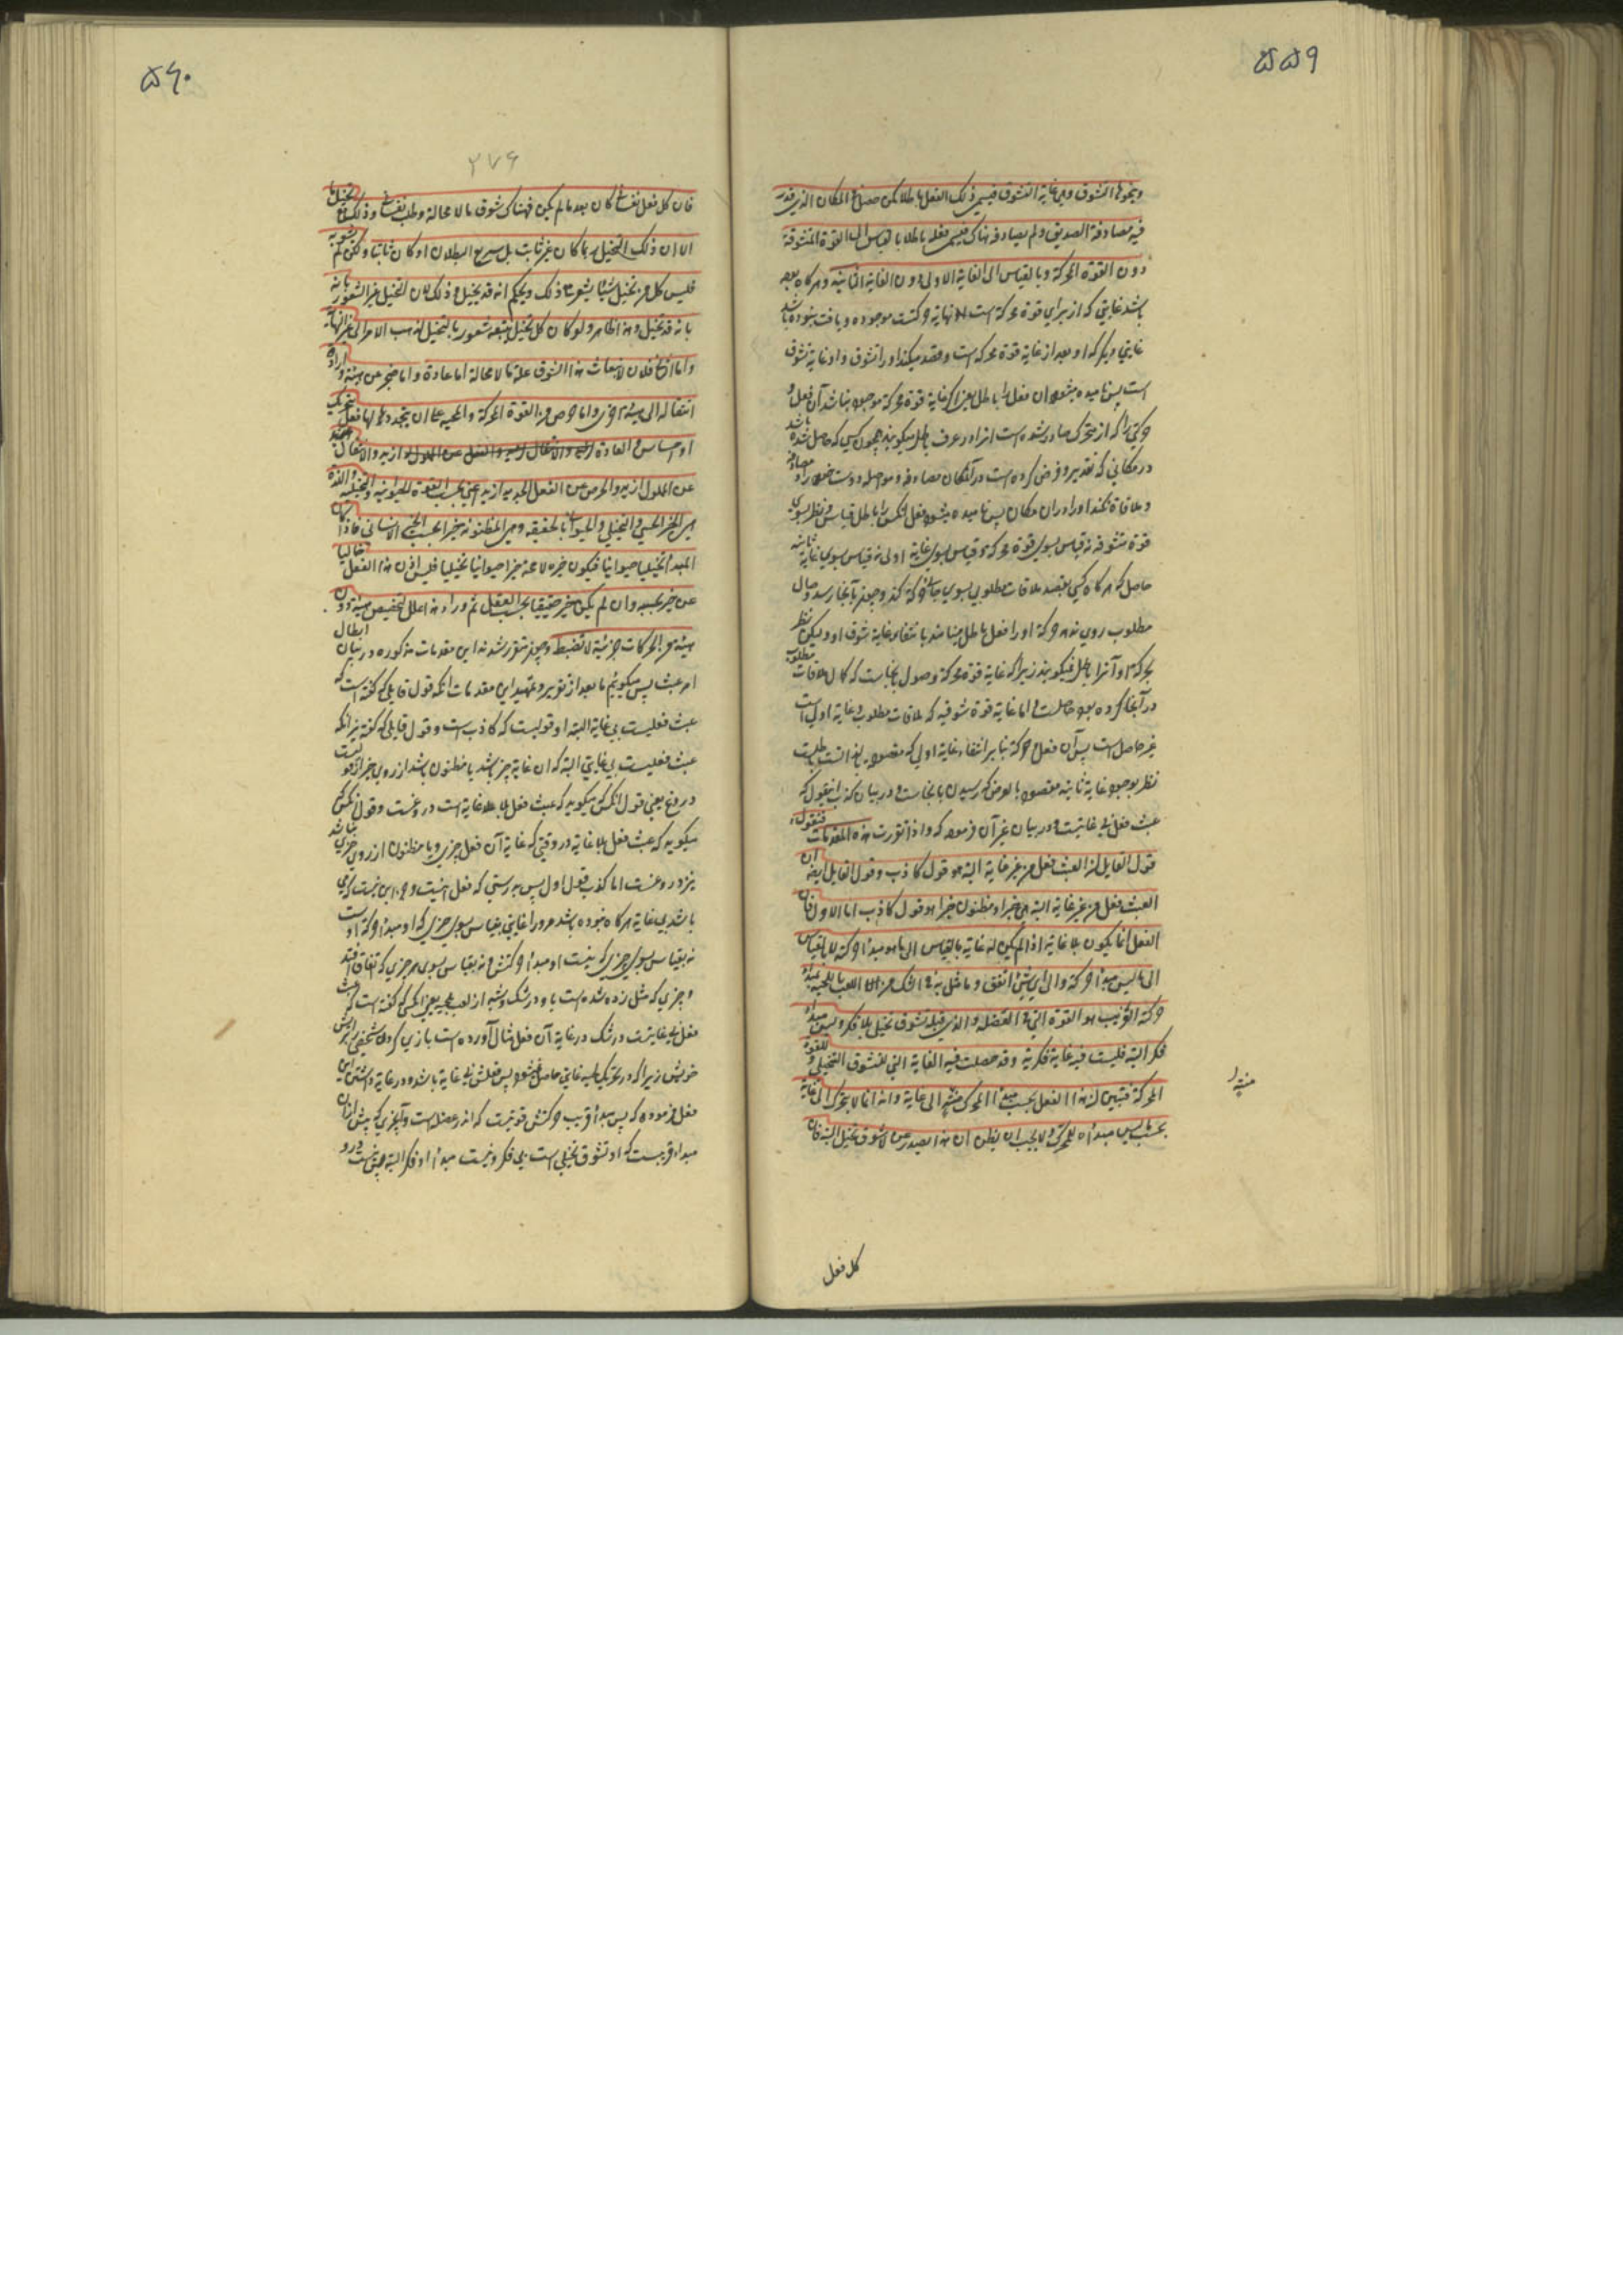 ۵۵۹
ونحوها التشوق وهي غاية التشوق فيسمي ذلك الفعل باطلا كمن حصل في المكان الذي قدر
فيه مصادفة الصديق ولم يصادفه هناك فيسمي فعله باطلا بالقياس الى القوة المتشوقة
دون القوة المحركة وبالقياس الى الغاية الاولى دون الغاية الثانية وهر كاه بوده
باشد غايتي كه از براي قوة محركه است نهاية حركتست موجوده ويافت نبوده باشد
غايتي ديكر كه او بعد از غاية قوة محركه است وقصد ميكند او را تشوق واو غاية تشوق
است پس ناميده ميشود ان فعل را باطل يعني اكر غاية قوة محركة موجود باشد آن فعل و
حركتي را كه از متحرك صادر شده است انرا در عرف باطل ميكويند همچون كسي كه حاصل شده باشد
در مكاني كه تقدير وفرض كرده است در آنمكان مصادفه دوست خود را و
وملاقاة نكند او را در ان مكان پس ناميده ميشود فعل انكس را باطل قياس ونظر بسوي
قوة متشوقه نه قياس بسوي قوة محركه وقياس بسوي غاية اولى نه قياس بسوي غاية ثانيه
حاصل كه هر كاه كسي بقصد ملاقات مطلوبي بسوي مكاني حركة كند وچون بآنجا رسد وصال
مطلوب روي ندهد حركة او را فعل باطل مينامند بانتفاء غاية شوق او وليكن نظر
بحركة او آنرا باطل نميكويند زيرا كه غاية قوة محركة وصول بآنجاست كه كمان ملاقات مطلوب
در آنجا كرده بود حاصلست اما غاية قوة شوقيه كه ملاقات مطلوب وغاية اولي است
غير حاصل است پس آن فعل وحركة بنا بر انتفاء غاية اولي كه مقصود بالذاتست باطلست
نظر بوجود غاية ثانيه مقصود بالعرض كه رسيدن بآنجاست ودر بيان كذب اينقول كه
عبث فعل بي غايتست ودر بيان غير آن فرموده كه واذا تقررت هذه المقدمات فنقول
قول القايل ان العبث فعل من غير غاية البتة هو قول كاذب وقول القايل ايضا ان
العبث فعل من غير غاية البتة هي خير او مظنون خيرا هو قول كاذب اما الاول فان
الفعل انما يكون بلا غاية اذا لم يكن له غاية بالقياس الى ما هو مبدأ حركته لا بالقياس
الى ما ليس مبدأ حركته والى اي شئ اتفق وما مثل به في الشك من اللعب باللحية فمبدأ
حركته القريب هو القوة التي في العضلة والذي قبله تشوق تخيل بلا فكر وليس مبدأ
فكر البتة فليست فيه غاية فكرية وقد حصلت فيه الغاية التي للتشوق التخيلي وللقوة
المحركة فتبين ان هذا الفعل بحسب مبدأ المحرك منته الى غاية وانه انما لا يتحرك الى غاية
بحسب ما ليس مبدأ له للحركة ولا يجب ان يظن ان هذا يصدر عن لا شوق تخيل البتة فان
منته
كل فعل
۵۶۰
۲۷۶
فان كل فعل نفساني كان بعد ما لم يكن فهناك شوق ما لا محالة وطلب نفساني وذلك مع تخيل ما
الا ان ذلك التخيل ربما كان غير ثابت بل سريع البطلان او كان ثابتا ولكن لم يشعر به
فليس كل من تخيل شيئا يشعر مع ذلك ويحكم انه قد تخيل وذلك لان التخيل غير الشعور بانه
بانه قد تخيل وهذا ظاهر ولو كان كل تخيل يتبعه شعور بالتخيل لذهب الامر الى غير النهاية
واما الثاني فلان لانبعاث هذا الشوق علة ما لا محالة اما عادة واما ضجر عن هيئة وارادة
انتقال الى هيئة اخرى واما حرص من القوة المحركة والمحسة على ان يتجدد لها فعل تحريك
او احساس والعادة لذيذة والانتقال
عن المملول لذيذ والحرص على الفعل الجديد لذيذ اعني بحسب القوة الحيوانية والتخيلية واللذة
هي الخير الحسي والتخيلي والحيواني بالحقيقة وهي المظنونة خيرا بحسب الخير الانساني فاذا كان
المبدأ تخيليا حيوانيا فيكون خيره لا محالة خيرا حيوانيا تخيليا فليس اذن هذا الفعل خاليا
عن خير بحسبه وان لم يكن خيرا حقيقيا بحسب العقل ثم وراء هذا علل لتخصيص هيئة دون
هيئة من الحركات جزئية لا تضبط وچون متقرر شد نه اين مقدمات مذكوره در بيان ابطال
امر عبث پس ميكوئيم ما بعد از تقرير وتمهيد اين مقدمات انكه قول قايلي كه كفته است كه
عبث فعليست بي غاية البته او قوليست كه كاذب است وقول قايلي كه كفته نيز انكه
عبث فعليست بي غايتي البته كه ان غاية خير باشد يا مظنون باشد از روي خير ان قوليست
دروغ يعني قول انكس كه ميكويد كه عبث فعل بلا غاية است دروغست وقول انكس كه
ميكويد كه عبث فعل بلا غاية در وقتي كه غاية آن فعل چيزي ويا مظنون از روي خيري نباشد
نيز دروغست اما كذب قول اول پس بدرستي كه فعل
باشد بي غاية هر كاه نبوده باشد مر او را غايتي بقياس بسوي چيزي كه او مبدأ حركة اوست
نه بقياس بسوي چيزي كه نيست او مبدأ حركتش ونه بقياس بسوي هر چيزي كه اتفاق افتد
وچيزي كه مثل زده شده است باو در شك وشبه از لعب بلحيه يعني انكسي كه كفته است كه عبث
فعل بي غايتست در شك در غاية آن فعل مثال آورده است بازي كردن شخصي بريش
خويش زيرا كه در تحريك لحيه غايتي حاصل نميشود پس فعلش بي غاية باشد ودر غاية داشتن اين
فعل فرموده كه پس مبدأ قريب حركتش قوتيست كه اندر عضله است وآنچيزي كه پيش از آن
مبدأ قريبست كه او تشوق تخيلي است بي فكر ونيست مبدأ او فكر البته پس نيست درو